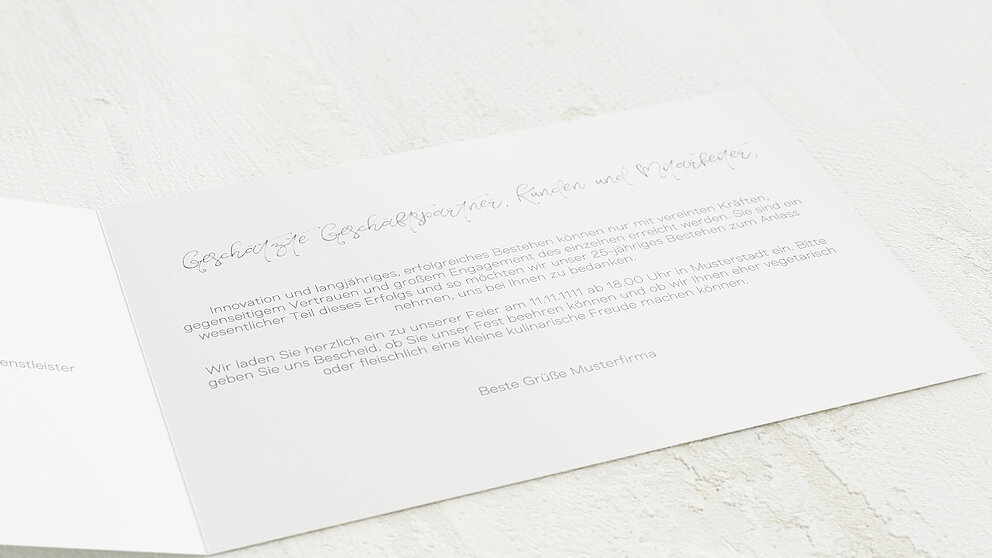 enstleister
Geschätzte Geschäftspartner, Kunden und Mitarbeiter,
Innovation und langjähriges, erfolgreiches Bestehen können nur mit vereinten Kräften,
gegenseitigem Vertrauen und großem Engagement des einzelnen erreicht werden. Sie sind ein
wesentlicher Teil dieses Erfolgs und so möchten wir unser 25-jähriges Bestehen zum Anlass
nehmen, uns bei Ihnen zu bedanken.
Wir laden Sie herzlich ein zu unserer Feier am 11.11.1111 ab 18.00 Uhr in Musterstadt ein. Bitte
geben Sie uns Bescheid, ob Sie unser Fest beehren können und ob wir Ihnen eher vegetarisch
oder fleischlich eine kleine kulinarische Freude machen können.
Beste Grüße Musterfirma